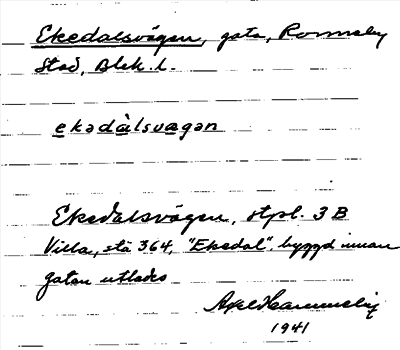 Ekedalsvägen, gata, Ronneby
Stad, Blek. l.
ekədàlsvagən
Ekedalsvägen, stpl. 3 B
Villa, stä 364, "Ekedal", byggd innan
gatan utlades
Axel Hammelig
1941